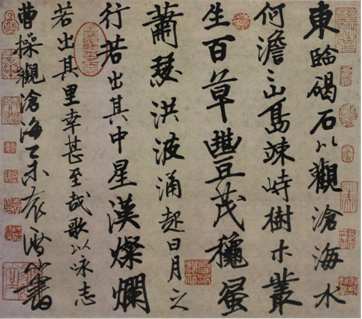 東臨碣石以觀滄海水
何澹〻山島竦峙樹木叢
生百草豐茂穐風
蕭瑟洪波涌起日月之
行若出其中星漢燦爛
若出其里幸甚至哉歌以詠志
曹操觀滄海乙未書